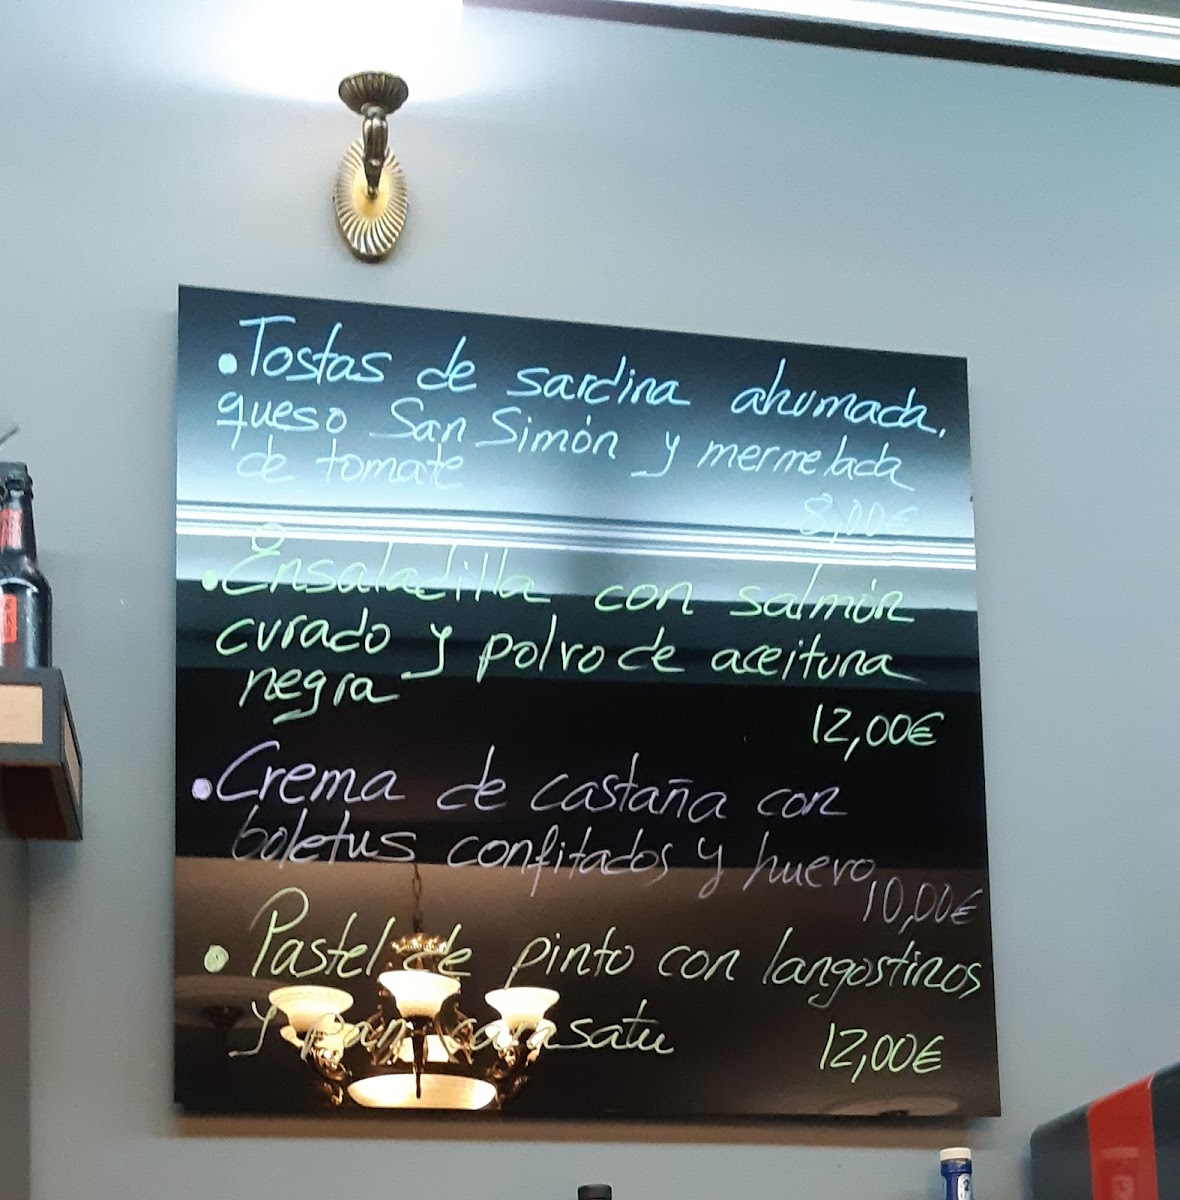 • Tostas de sardina ahumada,
queso San Simón y mermelada
de tomate
8,00€
• Ensaladilla con salmón
curado y polvo de aceituna
negra
12,00€
• Crema de castaña con
boletus confitados y huevo
10,00€
• Pastel de pinto con langostinos
y pan carasatu
12,00€